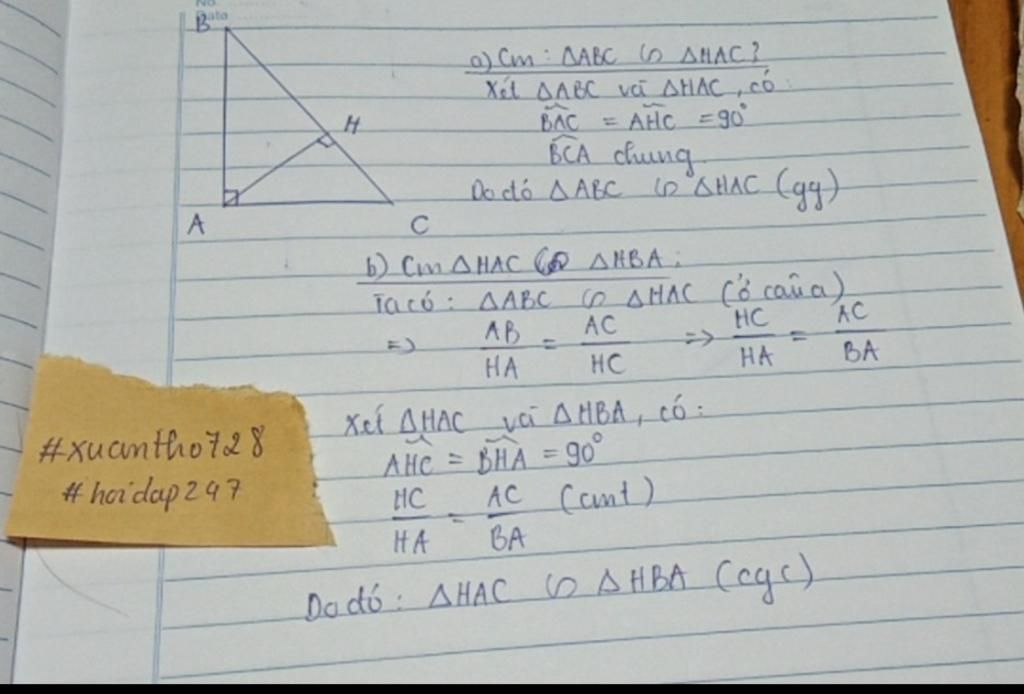 No.
Date
B
H
A
C
a) Cm : ΔABC ∽ ΔHAC?
Xét ΔABC và ΔHAC, có:
BAC = AHC = 90°
BCA chung
Do đó ΔABC ∽ ΔHAC (gg)
b) Cm ΔHAC ∽ ΔHBA:
Ta có: ΔABC ∽ ΔHAC (ở câu a)
=> AB/HA = AC/HC => HC/HA = AC/BA
Xét ΔHAC và ΔHBA, có:
AHC = BHA = 90°
HC/HA = AC/BA (cmt)
Do đó: ΔHAC ∽ ΔHBA (cgc)
#xuantho728
#hoidap247